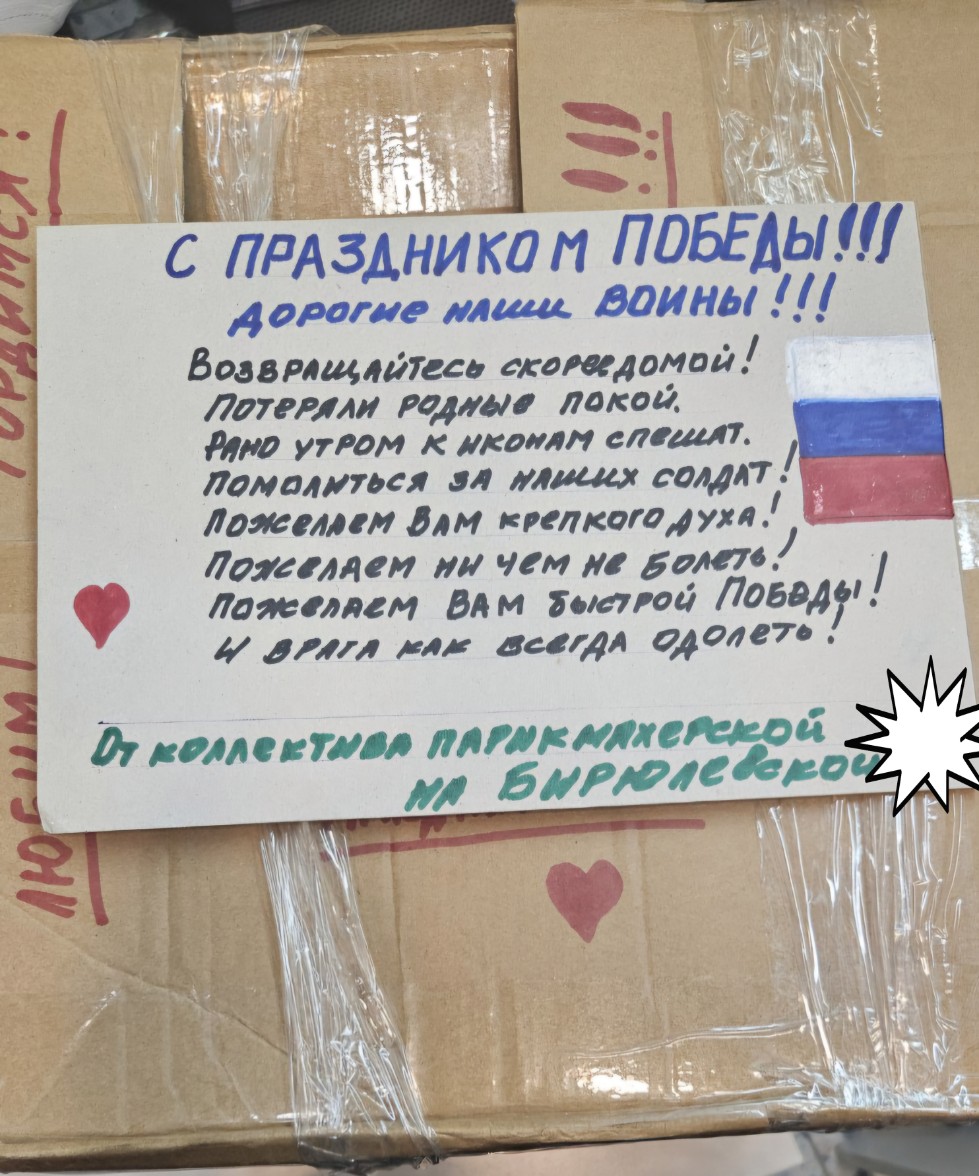 С ПРАЗДНИКОМ ПОБЕДЫ!!!
дорогие наши воины!!!
Возвращайтесь скорее домой!
Потеряли родные покой.
Рано утром к иконам спешат.
Помолиться за наших солдат!
Пожелаем Вам крепкого духа!
Пожелаем ни чем не болеть!
Пожелаем Вам быстрой Победы!
И врага как всегда одолеть!
От коллектива парикмахерской
на Бирюлевской
ГОРДИМСЯ!
ЛЮБИМ!
!!!